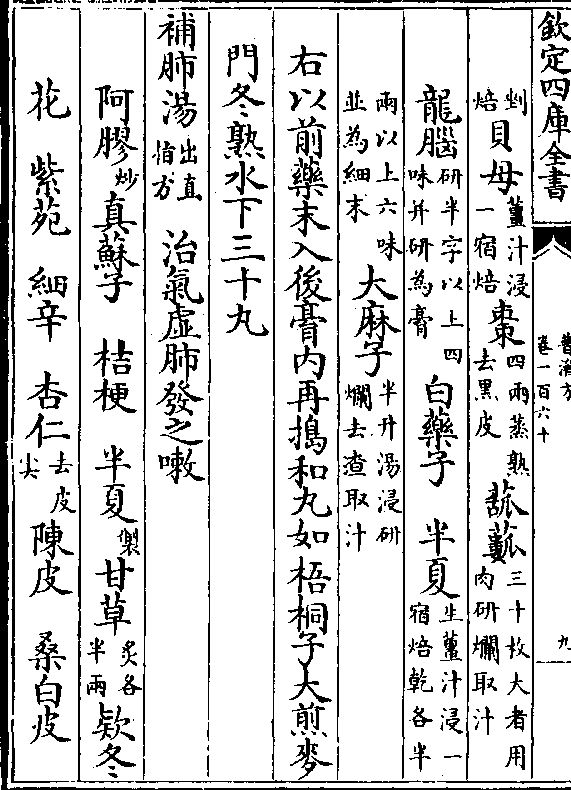 欽定四庫全書
普濟方
卷一百六十
九
剉焙貝母薑汁浸一宿焙棗四兩蒸熟去黑皮三十枚大者用肉研爛取汁
龍腦研半字以上四味并研為膏白藥子 半夏生薑汁浸一宿焙乾各半
兩以上六味並為細末大麻子半升湯浸研爛去渣取汁
右以前藥末入後膏內再搗和丸如梧桐子大煎麥
門冬熟水下三十丸
補肺湯出直指方 治氣虛肺發之嗽
阿膠炒真蘇子 桔梗 半夏製甘草炙各半兩欵冬
花 紫菀 細辛 杏仁去皮尖陳皮 桑白皮